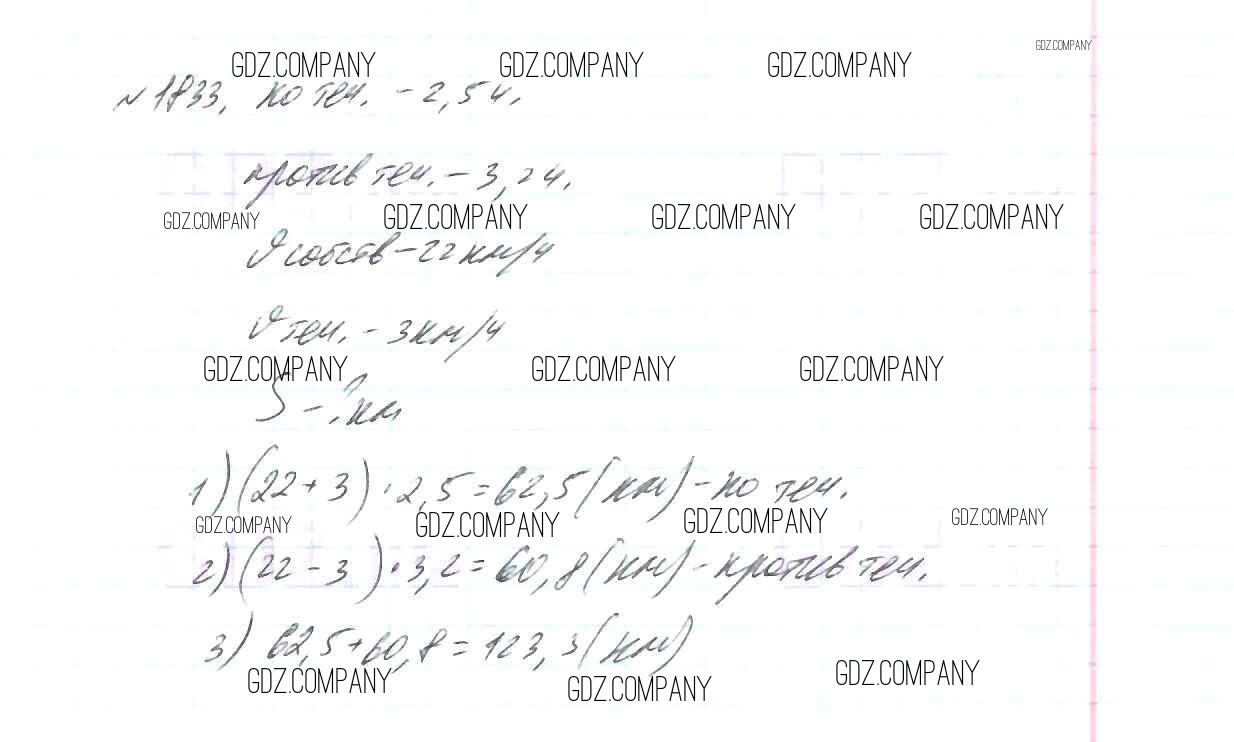 GDZ.COMPANY GDZ.COMPANY GDZ.COMPANY GDZ.COMPANY
№1833, по теч. - 2,5 ч.
против теч. - 3,2 ч.
GDZ.COMPANY GDZ.COMPANY GDZ.COMPANY GDZ.COMPANY
υ собств - 22 км/ч
υ теч. - 3 км/ч
GDZ.COMPANY GDZ.COMPANY GDZ.COMPANY
S - ? км
1) (22 + 3) · 2,5 = 62,5 (км) - по теч.
GDZ.COMPANY GDZ.COMPANY GDZ.COMPANY GDZ.COMPANY
2) (22 - 3) · 3,2 = 60,8 (км) - против теч.
3) 62,5 + 60,8 = 123,3 (км)
GDZ.COMPANY GDZ.COMPANY GDZ.COMPANY